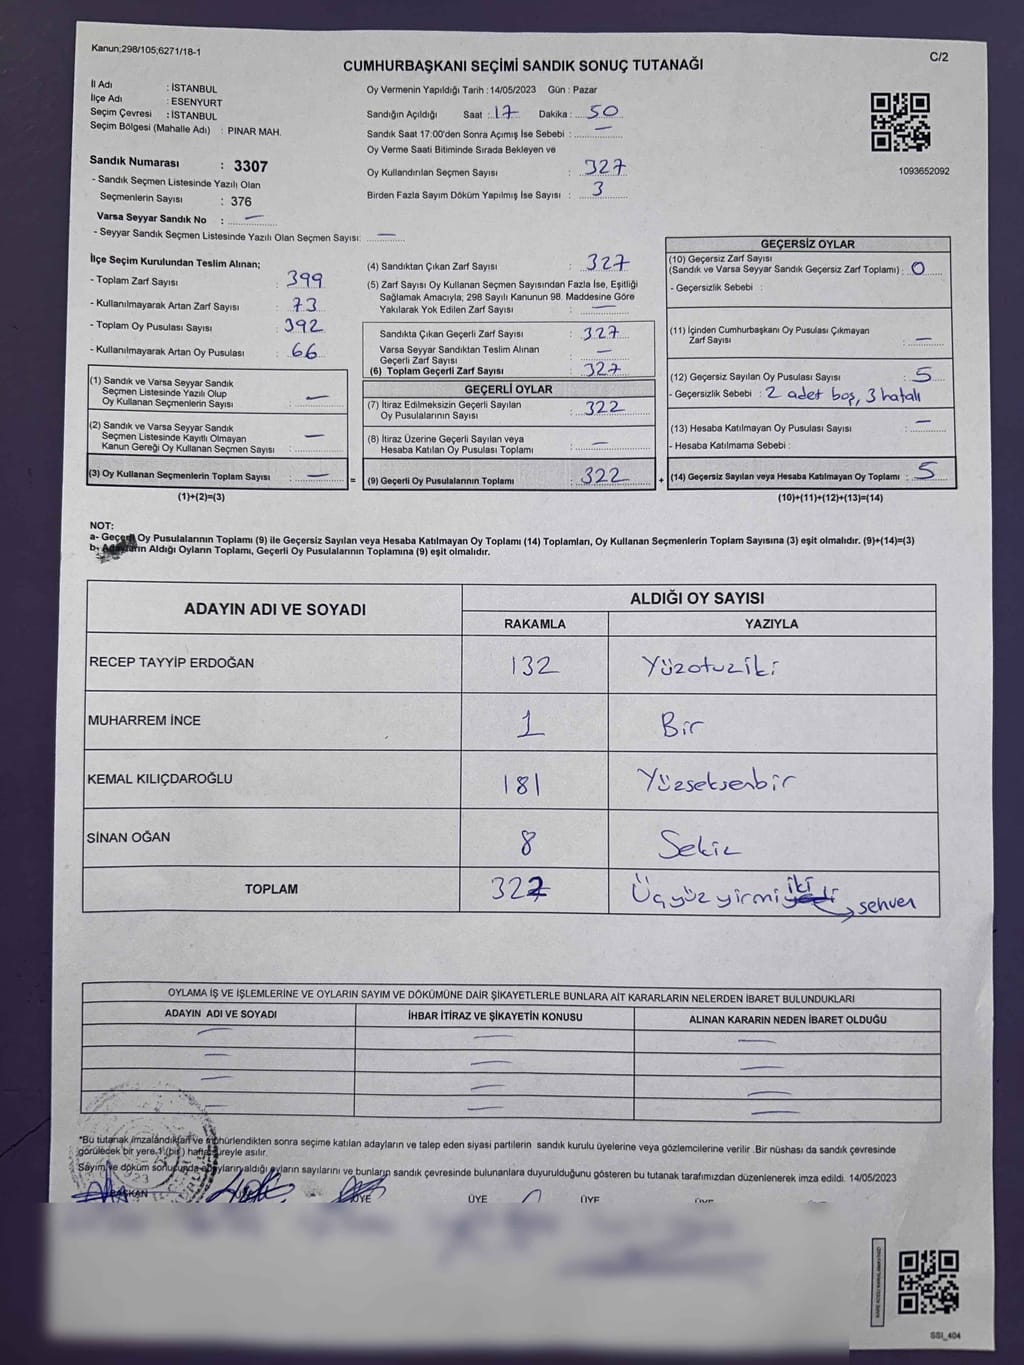 Kanun;298/105;6271/18-1
C/2
CUMHURBAŞKANI SEÇİMİ SANDIK SONUÇ TUTANAĞI
İl Adı : İSTANBUL
İlçe Adı : ESENYURT
Seçim Çevresi : İSTANBUL
Seçim Bölgesi (Mahalle Adı) : PINAR MAH.
Sandık Numarası : 3307
- Sandık Seçmen Listesinde Yazılı Olan
Seçmenlerin Sayısı : 376
Varsa Seyyar Sandık No : —
- Seyyar Sandık Seçmen Listesinde Yazılı Olan Seçmen Sayısı: —
Oy Vermenin Yapıldığı Tarih : 14/05/2023 Gün : Pazar
Sandığın Açıldığı Saat : 17 Dakika : 50
Sandık Saat 17:00'den Sonra Açımış İse Sebebi : —
Oy Verme Saati Bitiminde Sırada Bekleyen ve
Oy Kullandırılan Seçmen Sayısı : 327
Birden Fazla Sayım Döküm Yapılmış İse Sayısı : 3
1093652092
İlçe Seçim Kurulundan Teslim Alınan;
- Toplam Zarf Sayısı : 399
- Kullanılmayarak Artan Zarf Sayısı : 73
- Toplam Oy Pusulası Sayısı : 392
- Kullanılmayarak Artan Oy Pusulası : 66
(1) Sandık ve Varsa Seyyar Sandık
Seçmen Listesinde Yazılı Olup
Oy Kullanan Seçmenlerin Sayısı : —
(2) Sandık ve Varsa Seyyar Sandık
Seçmen Listesinde Kayıtlı Olmayan
Kanun Gereği Oy Kullanan Seçmen Sayısı : —
(3) Oy Kullanan Seçmenlerin Toplam Sayısı : —
(1)+(2)=(3)
(4) Sandıktan Çıkan Zarf Sayısı : 327
(5) Zarf Sayısı Oy Kullanan Seçmen Sayısından Fazla İse, Eşitliği
Sağlamak Amacıyla; 298 Sayılı Kanunun 98. Maddesine Göre
Yakılarak Yok Edilen Zarf Sayısı : —
Sandıkta Çıkan Geçerli Zarf Sayısı : 327
Varsa Seyyar Sandıktan Teslim Alınan
Geçerli Zarf Sayısı : —
(6) Toplam Geçerli Zarf Sayısı : 327
GEÇERLİ OYLAR
(7) İtiraz Edilmeksizin Geçerli Sayılan
Oy Pusulalarının Sayısı : 322
(8) İtiraz Üzerine Geçerli Sayılan veya
Hesaba Katılan Oy Pusulası Toplamı : —
= (9) Geçerli Oy Pusulalarının Toplamı : 322
GEÇERSİZ OYLAR
(10) Geçersiz Zarf Sayısı
(Sandık ve Varsa Seyyar Sandık Geçersiz Zarf Toplamı) : 0
- Geçersizlik Sebebi :
(11) İçinden Cumhurbaşkanı Oy Pusulası Çıkmayan
Zarf Sayısı : —
(12) Geçersiz Sayılan Oy Pusulası Sayısı : 5
- Geçersizlik Sebebi : 2 adet boş, 3 hatalı
(13) Hesaba Katılmayan Oy Pusulası Sayısı : —
- Hesaba Katılmama Sebebi :
+ (14) Geçersiz Sayılan veya Hesaba Katılmayan Oy Toplamı : 5
(10)+(11)+(12)+(13)=(14)
NOT:
a- Geçerli Oy Pusulalarının Toplamı (9) ile Geçersiz Sayılan veya Hesaba Katılmayan Oy Toplamı (14) Toplamları, Oy Kullanan Seçmenlerin Toplam Sayısına (3) eşit olmalıdır. (9)+(14)=(3)
b- Adayların Aldığı Oyların Toplamı, Geçerli Oy Pusulalarının Toplamına (9) eşit olmalıdır.
ADAYIN ADI VE SOYADI
ALDIĞI OY SAYISI
RAKAMLA YAZIYLA
RECEP TAYYİP ERDOĞAN 132 Yüzotuziki
MUHARREM İNCE 1 Bir
KEMAL KILIÇDAROĞLU 181 Yüzseksenbir
SİNAN OĞAN 8 Sekiz
TOPLAM 322 Üçyüzyirmi iki sehven
OYLAMA İŞ VE İŞLEMLERİNE VE OYLARIN SAYIM VE DÖKÜMÜNE DAİR ŞİKAYETLERLE BUNLARA AİT KARARLARIN NELERDEN İBARET BULUNDUKLARI
ADAYIN ADI VE SOYADI İHBAR İTİRAZ VE ŞİKAYETİN KONUSU ALINAN KARARIN NEDEN İBARET OLDUĞU
— — —
— — —
— — —
— — —
*Bu tutanak imzalandıktan ve mühürlendikten sonra seçime katılan adayların ve talep eden siyasi partilerin sandık kurulu üyelerine veya gözlemcilerine verilir .Bir nüshası da sandık çevresinde
görülecek bir yere 1 (bir) hafta süreyle asılır.
Sayım ve döküm sonucunda adayların aldığı oyların sayılarını ve bunların sandık çevresinde bulunanlara duyurulduğunu gösteren bu tutanak tarafımızdan düzenlenerek imza edildi. 14/05/2023
BAŞKAN ÜYE ÜYE ÜYE ÜYE
SSI_404